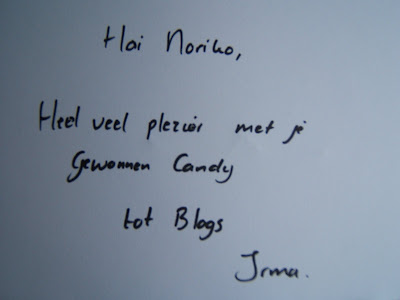 Hai Noriko,
Heel veel plezier met je
Gewonnen Candy
tot Blogs
Irma.